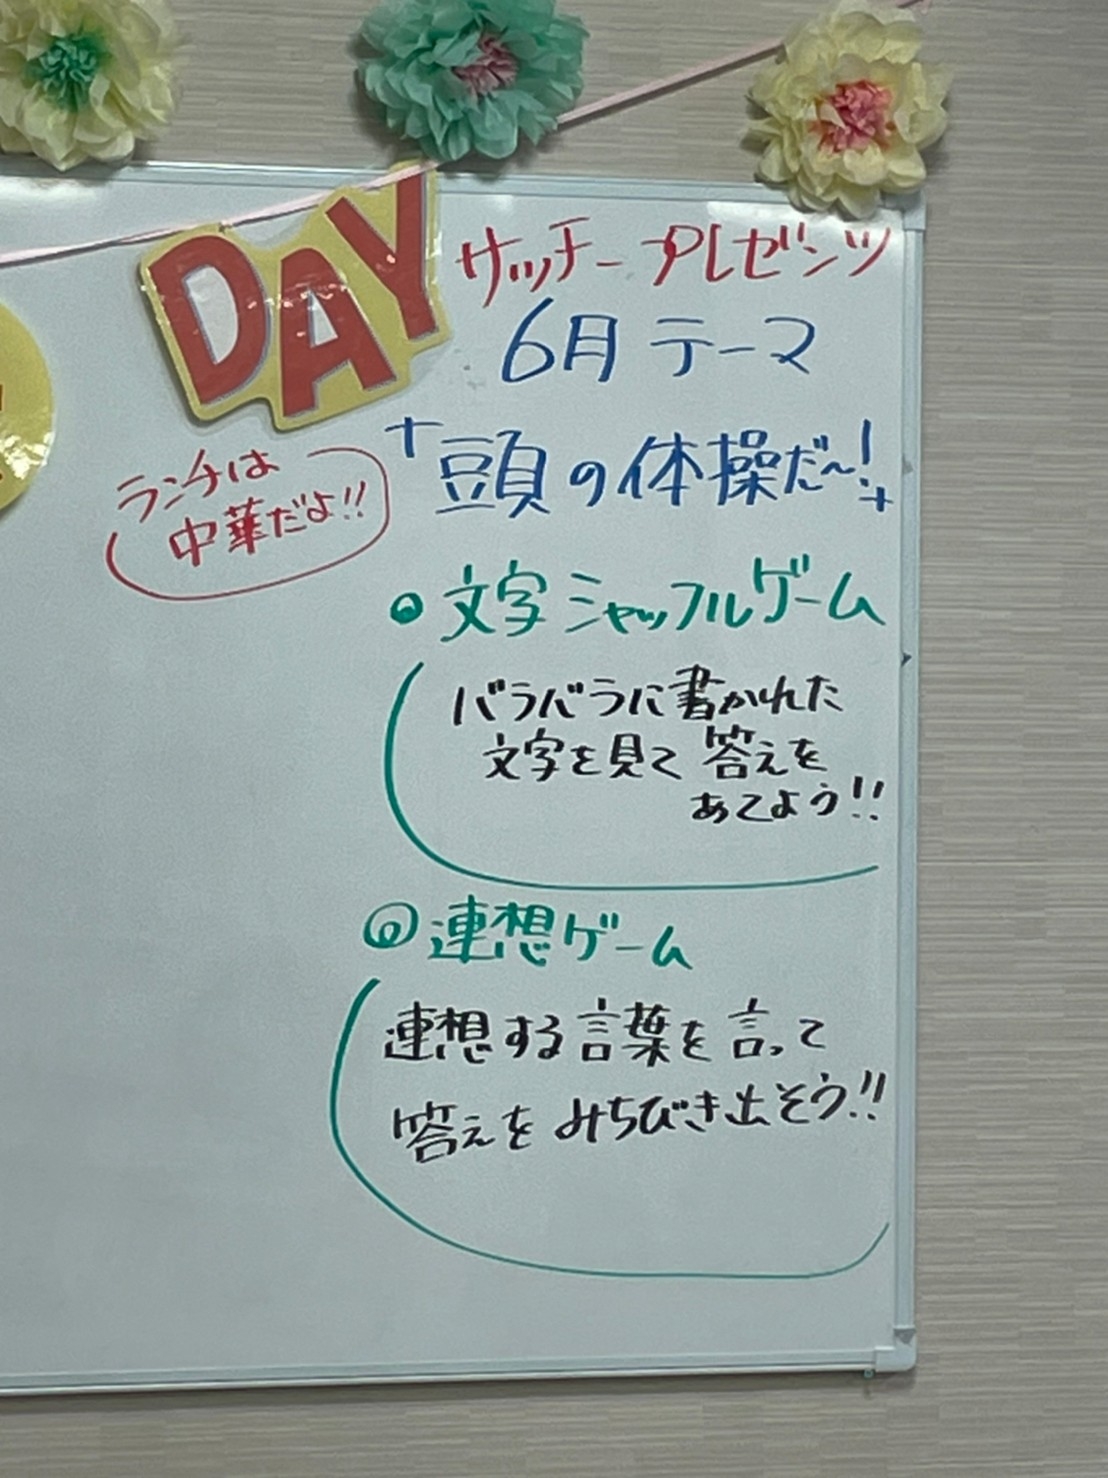 DAY
サッチー プレゼンツ
6月 テーマ
頭の体操だ〜!
ランチは
中華だよ!!
文字シャッフルゲーム
バラバラに書かれた
文字を見て 答えを
あてよう!!
連想ゲーム
連想する言葉を言って
答えをみちびき出そう!!